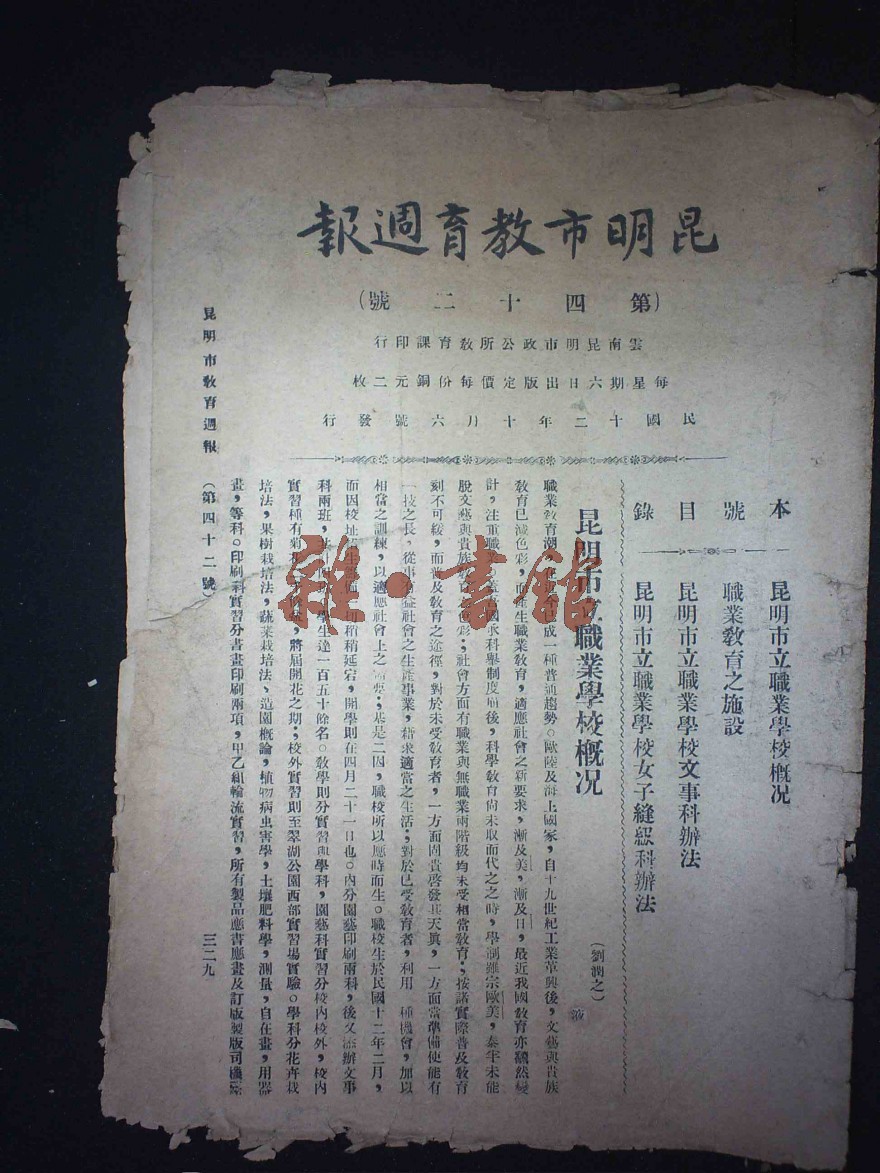 昆明市教育週報
(第四十二號)
雲南昆明市政公所教育課印行
每星期六日出版定價每份銅元二枚
民國十二年十月六號發行
本號目錄
昆明市立職業學校概况
職業教育之施設
昆明市立職業學校文事科辦法
昆明市立職業學校女子縫紉科辦法
昆明市立職業學校概况
(劉潤之)
職業教育潮 成一種普通趨勢。歐陸及海上國家,自十九世紀工業革興後,文藝與貴族
教育已減色彩,而產生職業教育,適應社會之新要求,漸及美,漸及日,最近我國教育亦飜然變
計,注重職 科舉制度廢後,科學教育尚未取而代之之時,學制雖宗歐美,泰半未能
脫文藝與貴族教 色彩;社會方面有職業與無職業兩階級均未受相當教育;按諸實際普及教育
刻不可緩,而普及教育之途徑,對於未受教育者,一方面固貴啓發其天眞,一方面當準備使能有
一技之長,從事 益社會之生產事業,藉求適當之生活;對於已受教育者,利用一種機會,加以
相當之訓練,以適應社會上之需要;基是二因,職校所以應時而生。職校生於民國十二年二月,
而因校址 一切稍稍延宕,開學則在四月二十一日也。內分園藝印刷兩科,後又添辦文事
科兩班, 學生達一百五十餘名。教學則分實習與學科,園藝科實習分校內校外,校內
實習種有菊花 ,將屆開花之期;校外實習則至翠湖公園西部實習場實驗。學科分花卉栽
培法,果樹栽培法,蔬菜栽培法、造園概論,植物病虫害學,土壤肥料學,測量,自在畫,用器
畫,等科。印刷科實習分書畫印刷兩項,甲乙組輪流實習,所有製品應書應畫及訂版製版司機
昆明市教育週報
(第四十二號)
三二九
雜·書館